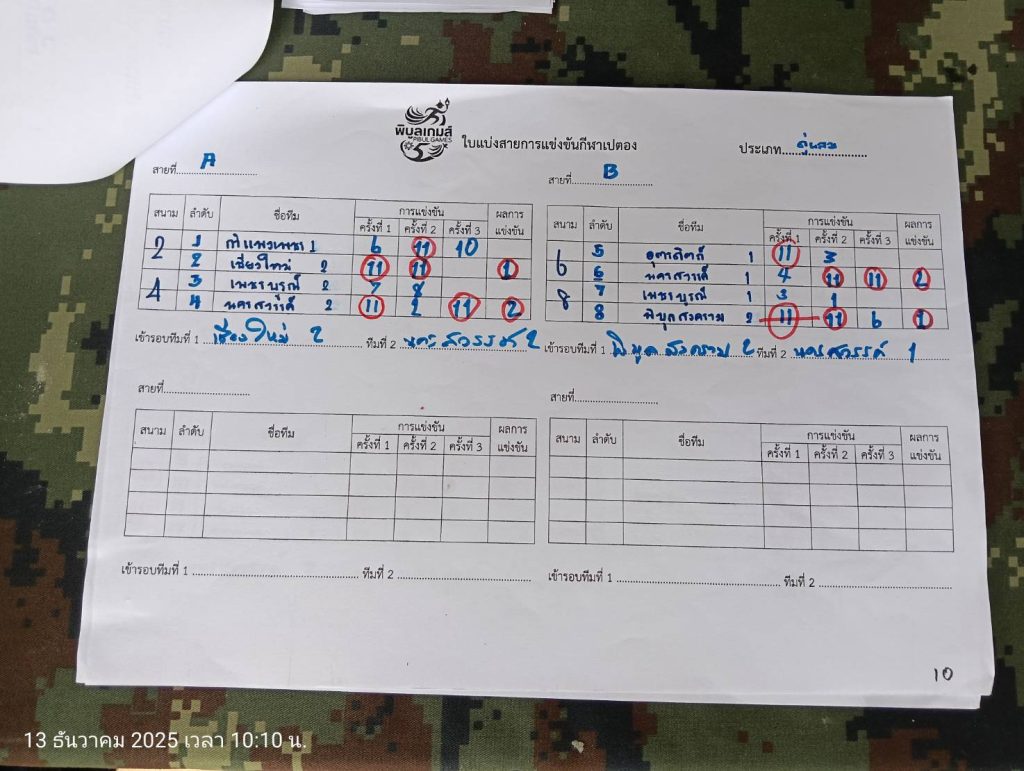 พิบูลเกมส์
PIBUL GAMES
ใบแบ่งสายการแข่งขันกีฬาเปตอง
ประเภท.....คู่ผสม
สายที่ A
สนาม ลำดับ ชื่อทีม การแข่งขัน ผลการแข่งขัน
ครั้งที่ 1 ครั้งที่ 2 ครั้งที่ 3
2 1 กำแพงเพชร 1 6 11 10
2 เชียงใหม่ 2 11 11 1
4 3 เพชรบูรณ์ 2 7 8
4 นครสวรรค์ 2 11 2 11 2
เข้ารอบทีมที่ 1 เชียงใหม่ 2 ทีมที่ 2 นครสวรรค์ 2
สายที่ B
สนาม ลำดับ ชื่อทีม การแข่งขัน ผลการแข่งขัน
ครั้งที่ 1 ครั้งที่ 2 ครั้งที่ 3
6 5 อุตรดิตถ์ 1 11 3
6 นครสวรรค์ 1 4 11 11 2
8 7 เพชรบูรณ์ 1 3 1
8 พิบูลสงคราม 2 11 11 6 1
เข้ารอบทีมที่ 1 พิบูลสงคราม 2 ทีมที่ 2 นครสวรรค์ 1
สายที่
สนาม ลำดับ ชื่อทีม การแข่งขัน ผลการแข่งขัน
ครั้งที่ 1 ครั้งที่ 2 ครั้งที่ 3
เข้ารอบทีมที่ 1 ทีมที่ 2
สายที่
สนาม ลำดับ ชื่อทีม การแข่งขัน ผลการแข่งขัน
ครั้งที่ 1 ครั้งที่ 2 ครั้งที่ 3
เข้ารอบทีมที่ 1 ทีมที่ 2
10
13 ธันวาคม 2025 เวลา 10:10 น.